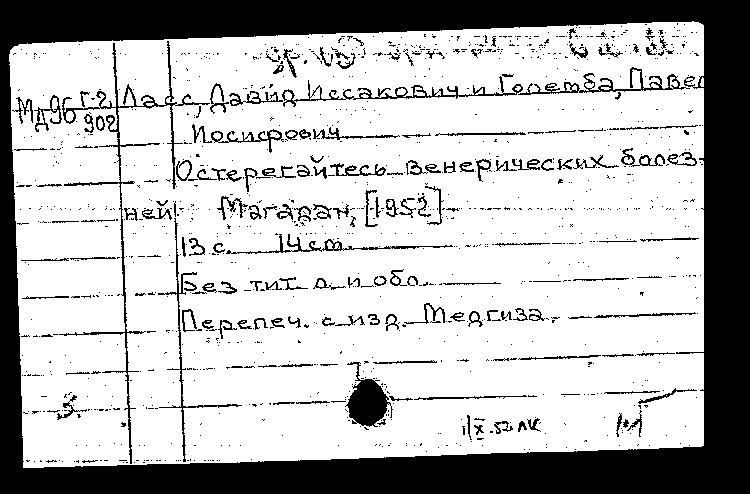 Мд96 Г-2 Ласс, Давид Иссакович и Големба, Павел
902 Иосифович
Остерегайтесь венерических болез-
ней Магадан, [1952]
13 с. 14 см.
Без тит. л. и обл.
Перепеч. с изд. Медгиза.
3.
1/X.52 ЛК